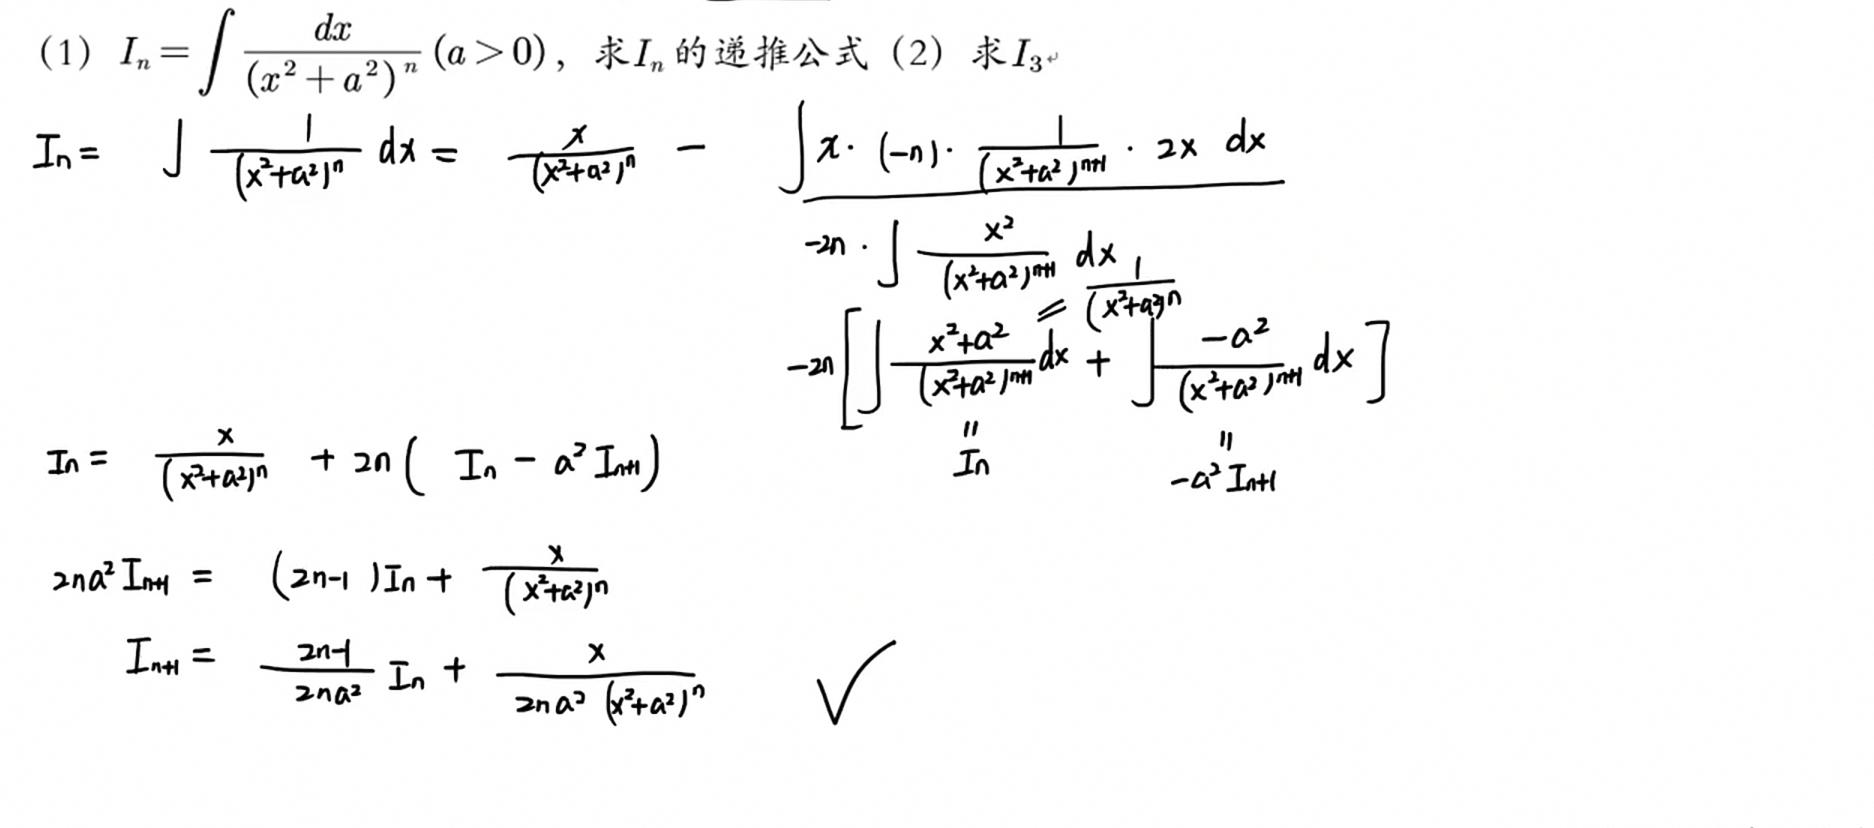 (1) Iₙ = ∫ dx/(x²+a²)ⁿ (a>0), 求Iₙ的递推公式 (2) 求I₃
Iₙ = ∫ 1/(x²+a²)ⁿ dx = x/(x²+a²)ⁿ − ∫ x·(−n)·1/(x²+a²)ⁿ⁺¹·2x dx
−2n·∫ x²/(x²+a²)ⁿ⁺¹ dx
= 1/(x²+a²)ⁿ
−2n[∫ (x²+a²)/(x²+a²)ⁿ⁺¹ dx + ∫ −a²/(x²+a²)ⁿ⁺¹ dx]
= Iₙ = −a² Iₙ₊₁
Iₙ = x/(x²+a²)ⁿ + 2n(Iₙ − a² Iₙ₊₁)
2na² Iₙ₊₁ = (2n−1)Iₙ + x/(x²+a²)ⁿ
Iₙ₊₁ = (2n−1)/2na² Iₙ + x/2na²(x²+a²)ⁿ ✓